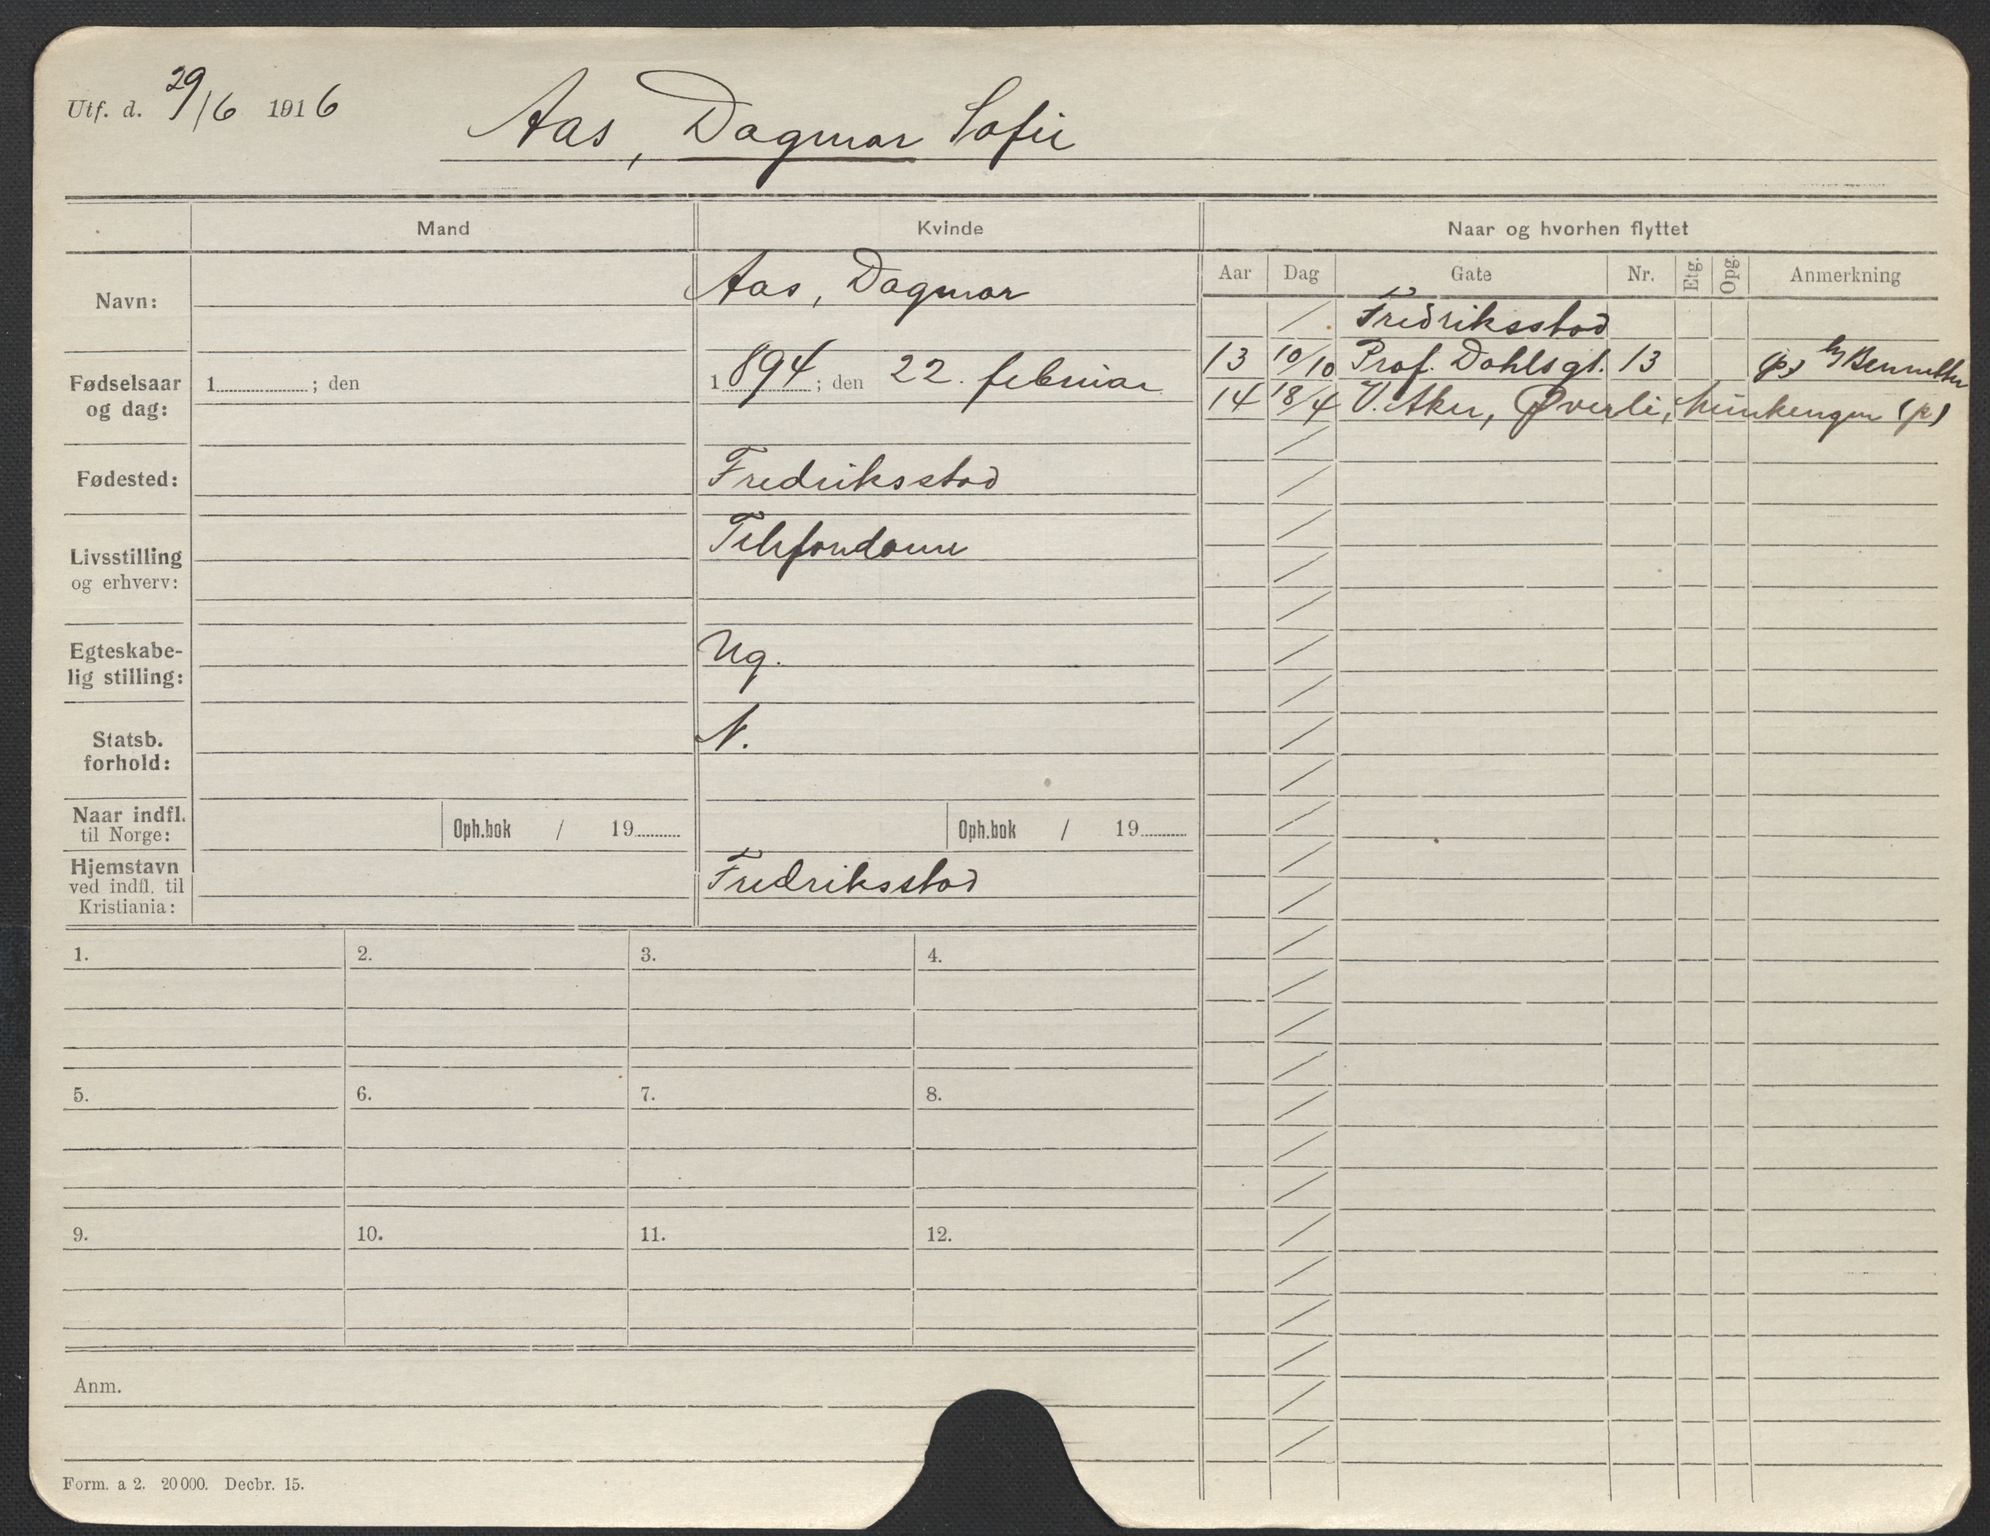 Utf. d. 29/6 1916
Aas, Dagmar Sofie
Mand
Kvinde
Naar og hvorhen flyttet
Aar Dag Gate Nr. Etg. Opg. Anmerkning
Navn:
Aas, Dagmar
Fødselsaar og dag:
1 ; den
1894 ; den 22. februar
Fødested:
Fredriksstad
Livsstilling og erhverv:
Telefondame
Egteskabelig stilling:
Ug.
Statsb. forhold:
N.
Naar indfl. til Norge:
Oph.bok / 19
Oph.bok / 19
Hjemstavn ved indfl. til Kristiania:
Fredriksstad
/ Fredriksstad
13 10/10 Prof. Dahlsgt. 13 (p)
14 18/4 V. Aker, Øverli, (p)
1. 2. 3. 4.
5. 6. 7. 8.
9. 10. 11. 12.
Anm.
Form. a 2. 20 000. Decbr. 15.